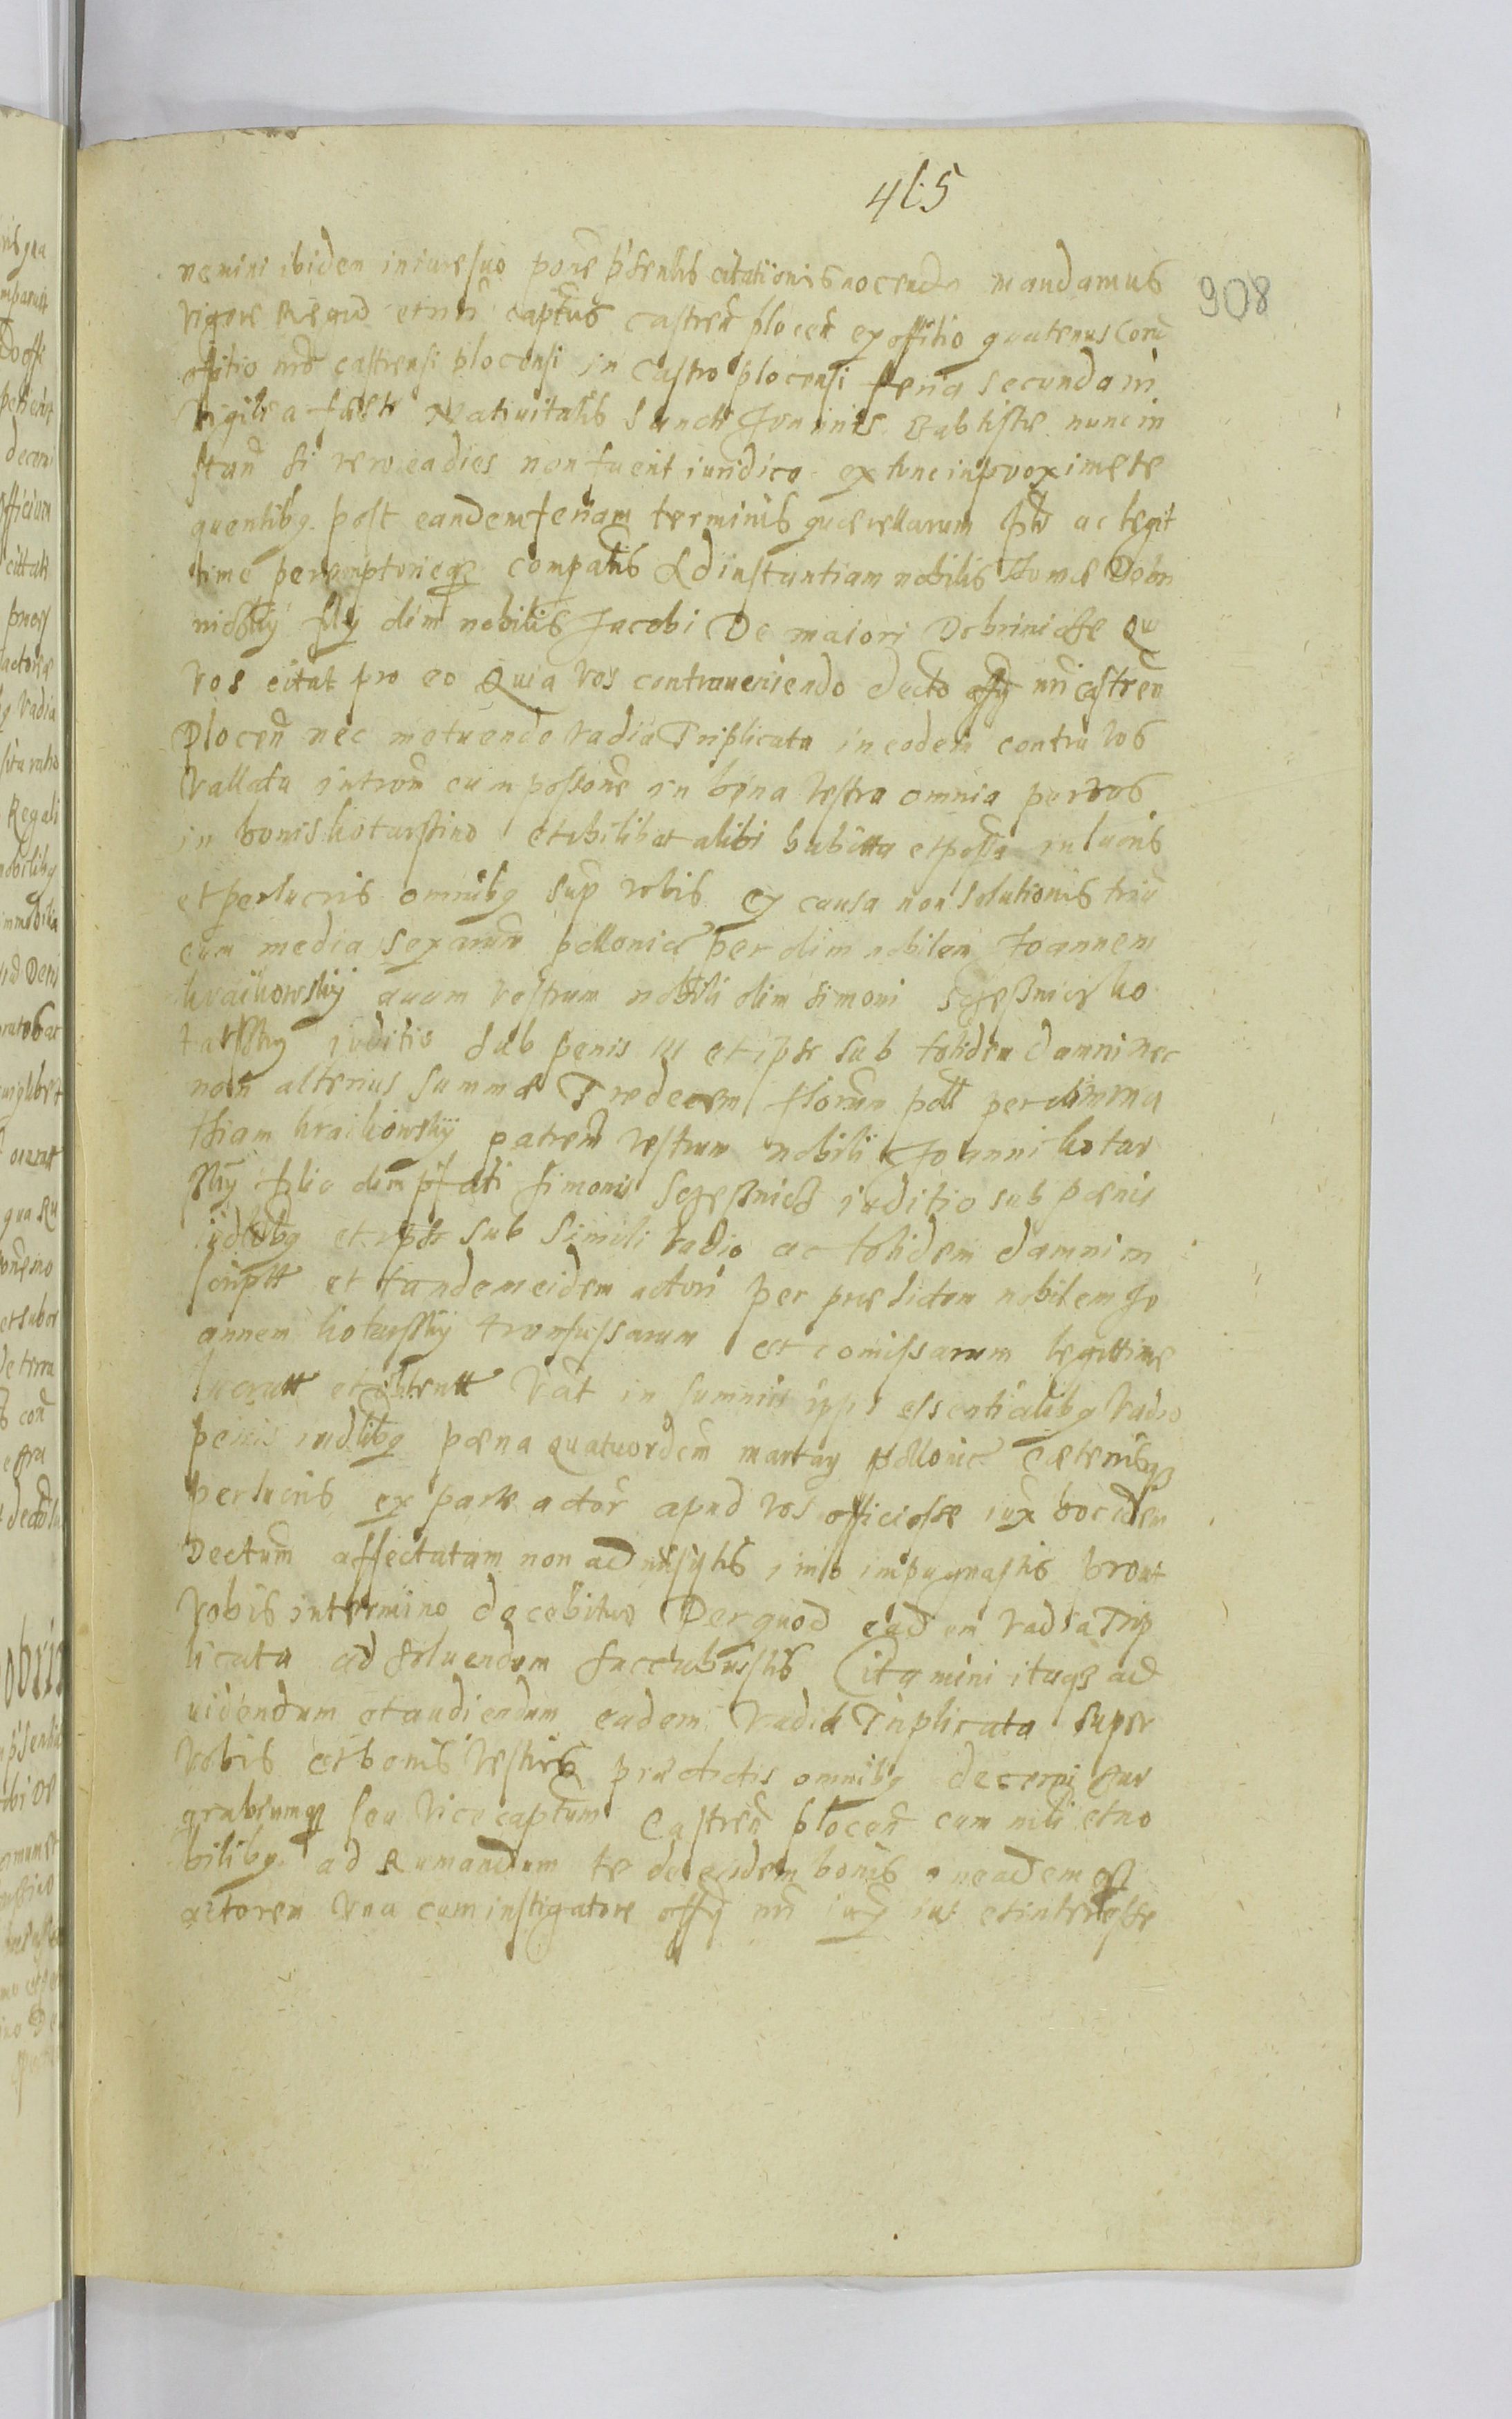 415
908
nemini ibidem in iure suo põne pñtentis citationis nocendo mandamus
vigore Regio et nri capteus castreñ ploceñ ex offitio quatenus Corã
offitio nrõ castrensi plocensi in Castro plocensi feria secunda in
vigilia festi Natiuitatis Sancti Joannis Babtiste nunc in
stañ si vero ea dies non fuerit iuridica ex tunc in proxime se
quentibq post eandem feriam terminis quaerellarum ac legit
time peremptorieqz compatis Ad instantiam nobilis Thomæ Dobr
nicskÿ filÿ olim nobilis Jacobi De maiori Dobrinicze Qui
vos citat pro eo Quia vos contraueniendo decto offÿ nri castreñ
Ploceñ nec metuendo vadia Triplicata in eodem contra vos
vallata introm cum possone in bona vestra omnia per vos
in bonis kotarssino et vbilibet alibi habita et possa in lucris
et perlucris omnibq sup vobis ex causa non solutionis triũ
cum media sexarum pollonice per olim nobilem Joannem
kraikowskÿ auum vestrum nobili olim simoni Sczesznich ko
tarsskÿ inditio sub penis et ipse sub totidem damni nec
non alterius summæ Tredecem florum poll per olim ma
thiam kraikowskÿ patrem vestrum nobili Joanni kotar
sskÿ filio olim pfati simonis Sczesznich inditio sub pænis
iudlibq et ipse sub simili vadio ac totidem damni in
scriptt et tandem eidem actori per prædictum nobilem Jo
annem kotarsskÿ transfussarum et comissarum legittime
lucratt et obtentt vat in summis ipps essentialibq vadio
penis iudlibq pæna quatuordecim marcarq pollonic cæterisqz
perlucris ex parte actor apud vos officiose iux hoc idem
Dectum affectatam non admisistis imo impugnastis prout
vobis in termino docebitur Per quod eadem vadia Trip
licata ad soluendum succubuistis Citamini itaqz ad
uidendum et audiendum eadem vadia Triplicata super
vobis et bonis vestris prædictis omnibq decerni
arabiumqz seu vice captum Castreñ ploceñ cum mili et no
bilibq ad Rumandum te de eisdem bonis
actorem vna cum instigatore offÿ nri iux ius et interesse